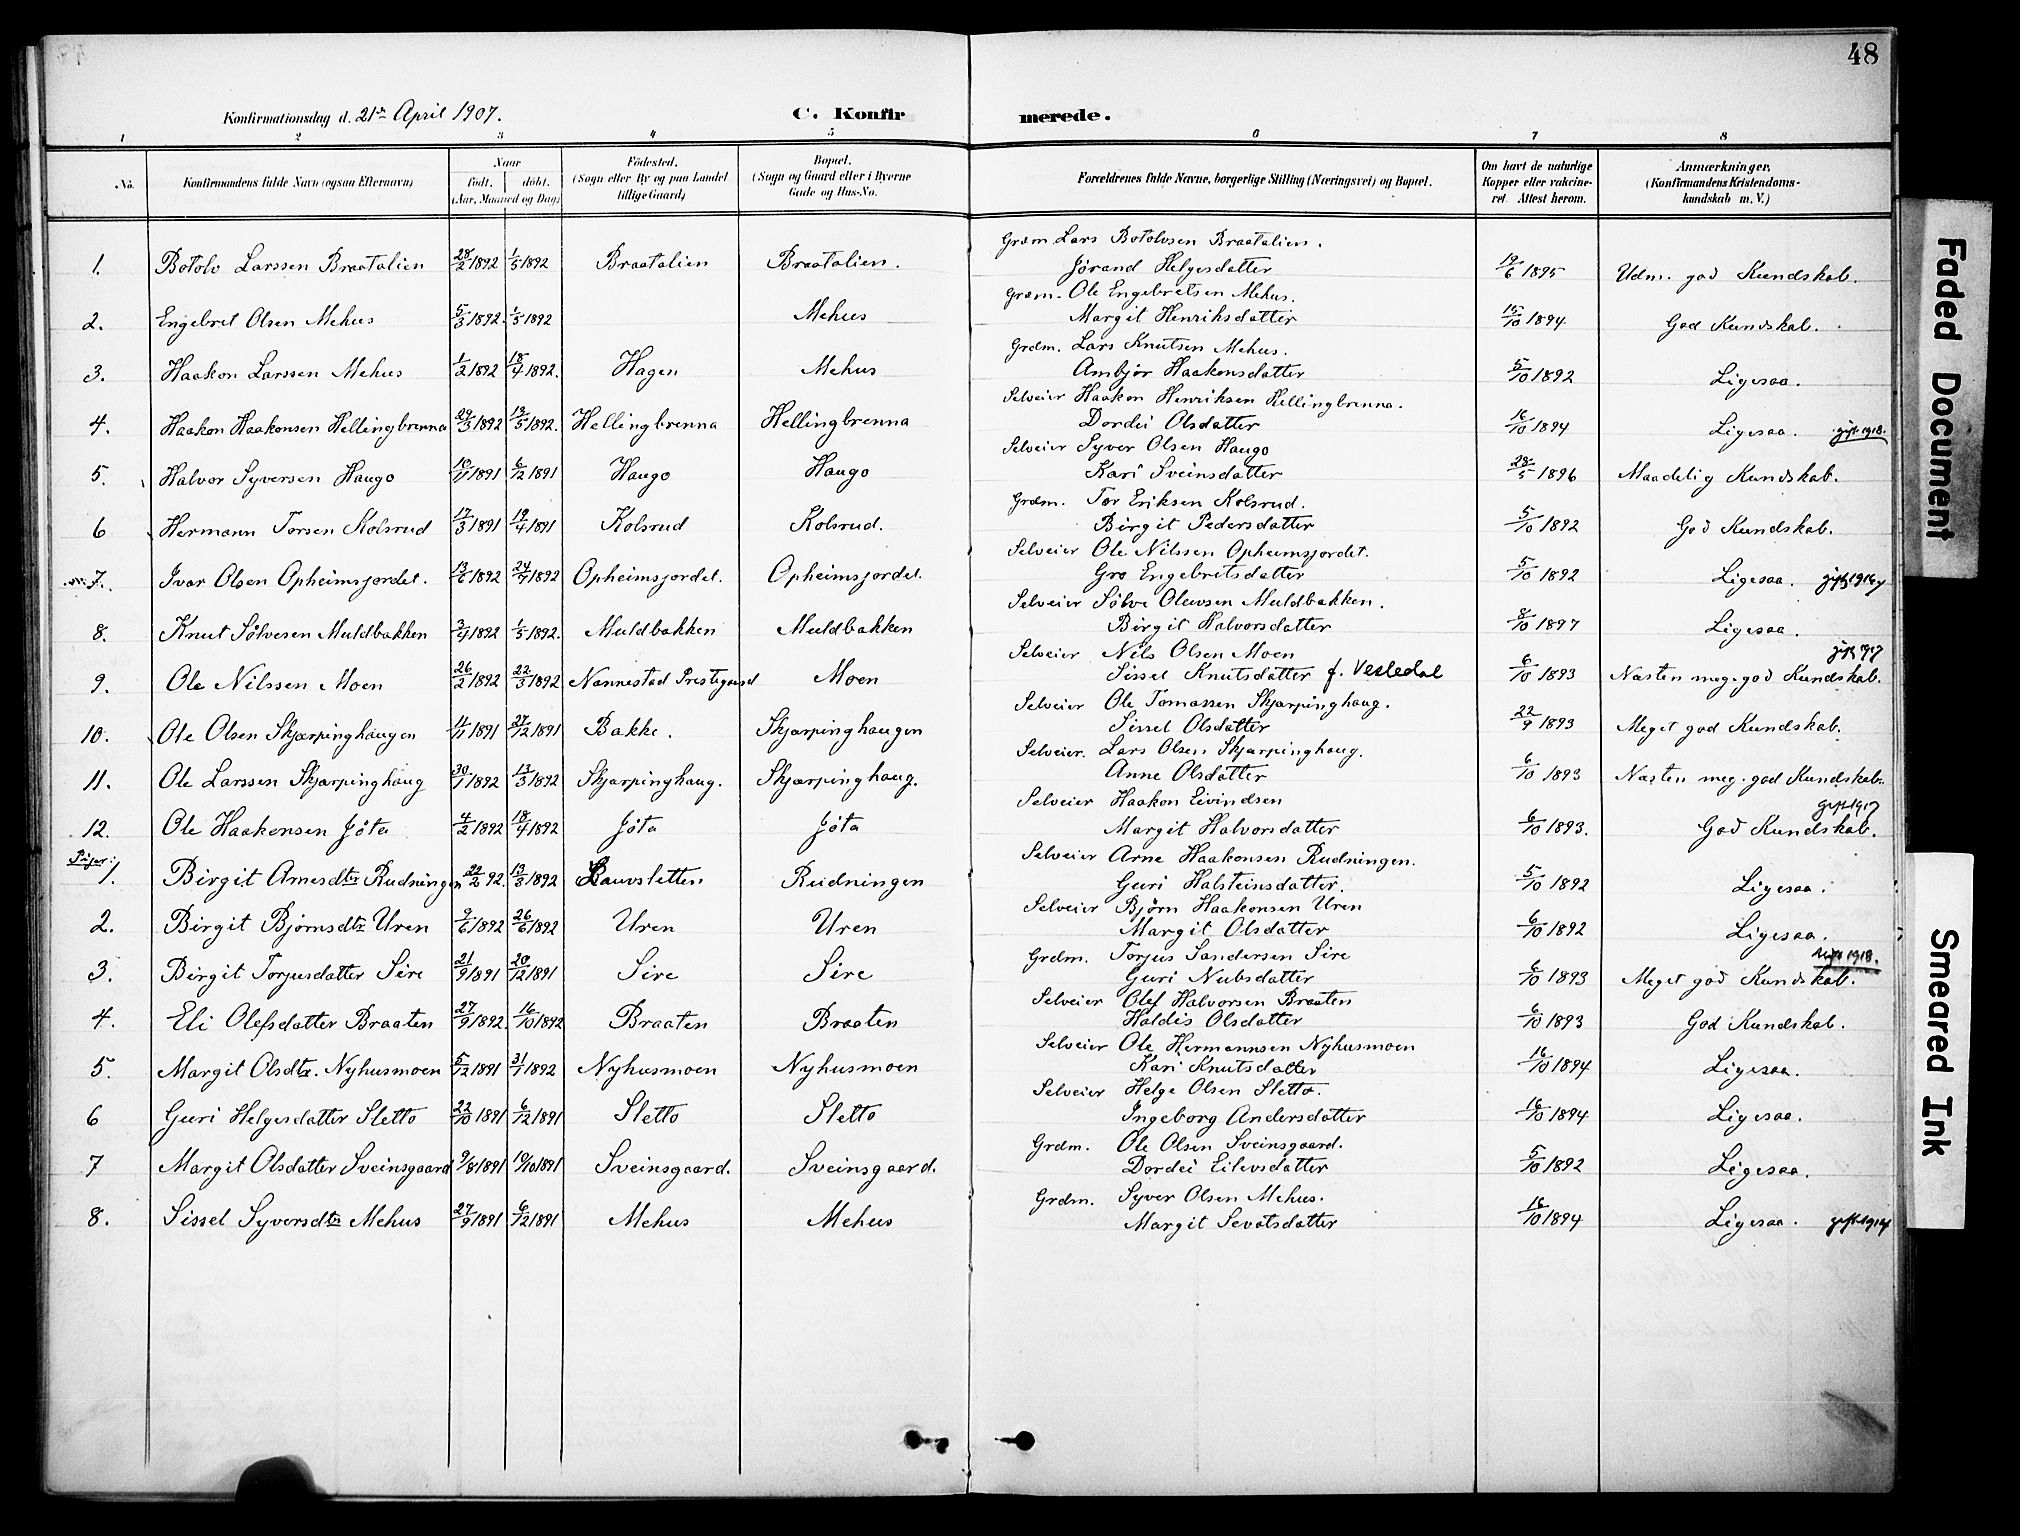 48
Konfirmationsdag d. 21de April 1907. C. Konfirmerede.
1 2 3 4 5 6 7 8
No. Konfirmandens fulde Navn (ogsaa Efternavn) Naar født. døbt. (Aar, Maaned og Dag) Fødested. (Sogn eller By og paa Landet tillige Gaard) Bopæl. (Sogn og Gaard eller i Byerne Gade og Hus-No. Forældrenes fulde Navne, borgerlige Stilling (Næringsvei) og Bopæl. Om havt de naturlige Kopper eller vakcineret. Attest herom. Anmærkninger, (Konfirmandens Kristendomskundskab m. V.)
Grdm Lars Botolvsen Braatalien.
1. Botolv Larssen Braatalien 28/2 1892 1/5 1892 Braatalien Braatalien. Jørand Helgesdatter 19/6 1895 Udm. god Kundskab.
Grdm. Ole Engebretsen Mehus.
2. Engebret Olsen Mehus 5/3 1892 1/5 1892 Mehus Margit Henriksdatter 15/10 1894 God Kundskab.
Grdm. Lars Knutsen Mehus.
3. Haakon Larssen Mehus 1/2 1892 18/4 1892. Hagen Mehus Ambjør Haakonsdatter 5/10 1892 Ligesaa.
Selveier Haakon Henriksen Hellingbrenna.
4. Haakon Haakonsen Hellingbrenna 29/3 1892 19/5 1892. Hellingbrenna Hellingbrenna Dordei Olsdatter 16/10 1894 Ligesaa. gift 1918.
Selveier Syver Olsen Haugo
5. Halvor Syversen Haugo 10/11 1891 6/12 1891 Haugo Haugo Kari Sveinsdatter 28/5 1896 Maadelig Kundskab.
Grdm. Tor Eriksen Kolsrud.
6 Hermann Torsen Kolsrud 17/3 1891 19/4 1891 Kolsrud Kolsrud. Birgit Pedersdatter 5/10 1892 God Kundskab.
Selveier Ole Nilssen Opheimsjordet.
7. Ivar Olsen Opheimsjordet. 13/6 1892 24/7 1892 Opheimsjordet. Opheimsjordet. Gro Engebretsdatter 5/10 1892 Ligesaa.
Selveier Sølve Olewsen Muldbakken.
8. Knut Sølvesen Muldbakken 3/4 1892 1/5 1892. Muldbakken Muldbakken Birgit Halvorsdatter 8/10 1897 Ligesaa.
Selveier Nils Olsen Moen
9. Ole Nilssen Moen 26/2 1892 22/3 1892 Nannestad Prestegaard Moen Sissel Knutsdatter f. Vesledal 6/10 1893 Næsten meg. god Kundskab.
Selveier Ole Tomassen Skjærpinghaug.
10. Ole Olsen Skjærpinghaugen 11/11 1891 27/12 1891 Bakke. Skjærpinghaugen Sissel Olsdatter 22/9 1893 Meget god Kundskab.
Selveier. Lars Olsen Skjærpinghaug.
11. Ole Larssen Skjærpinghaug 30/1 1892 13/3 1892 Skjærpinghaug. Skjærpinghaug. Anne Olsdatter 6/10 1893 Næsten meg. god Kundskab.
Selveier Haakon Eivindsen gift 1917
12. Ole Haakonsen Jøta 4/2 1892 18/4 1892 Jøta Jøta Margit Halvorsdatter 6/10 1893. God Kundskab.
Piger:
Selveier Arne Haakonsen Rudningen.
1. Birgit Arnesdtr Rudningen 22/2 92. 13/3 1892 Rudningen Guri Halsteinsdatter. 5/10 1892 Ligesaa.
Selveier Bjørn Haakonsen Uren
2. Birgit Bjørnsdtr Uren 9/6 1892 26/6 1892 Uren Uren Margit Olsdatter 6/10 1892 Ligesaa.
Grdm. Torjus Sandersen Sire gift 1918.
3. Birgit Torjusdatter Sire 21/9 1891 20/12 1891 Sire Sire Guri Nubsdatter 6/10 1893 Meget god Kundskab.
Selveier Olef Halvorsen Braaten
4. Eli Olefsdatter Braaten 27/9 1892. 16/10 1892 Braaten Braaten Haldis Olsdatter 6/10 1893 God Kundskab.
Selveier Ole Hermannsen Nyhusmoen
5. Margit Olsdtr. Nyhusmoen 5/12 1891 31/1 1892 Nyhusmoen Nyhusmoen Kari Knutsdatter 16/10 1894 Ligesaa.
Selveier Helge Olsen Sletto.
6 Guri Helgesdatter Sletto 22/10 1891 6/12 1891 Sletto Sletto Ingeborg Andersdatter 16/10 1894 Ligesaa.
Grdm. Ole Olsen Sveinsgaard.
7 Margit Olsdatter Sveinsgaard 9/8 1891 10/10 1891 Sveinsgaard. Sveinsgaard. Dordei Eilevsdatter 5/10 1892 Ligesaa.
Grdm. Syver Olsen Mehus.
8. Sissel Syversdtr Mehus 27/9 1891 6/12 1891 Mehus Mehus Margit Sevatsdatter 16/10 1894 Ligesaa.
Faded Document
Smeared or Smeared Ink